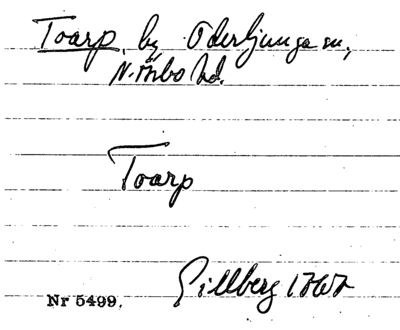 Toarp, by Oderljunga sn,
N. Åsbo hd.
Toarp
Gillberg 1767
Nr 5499.